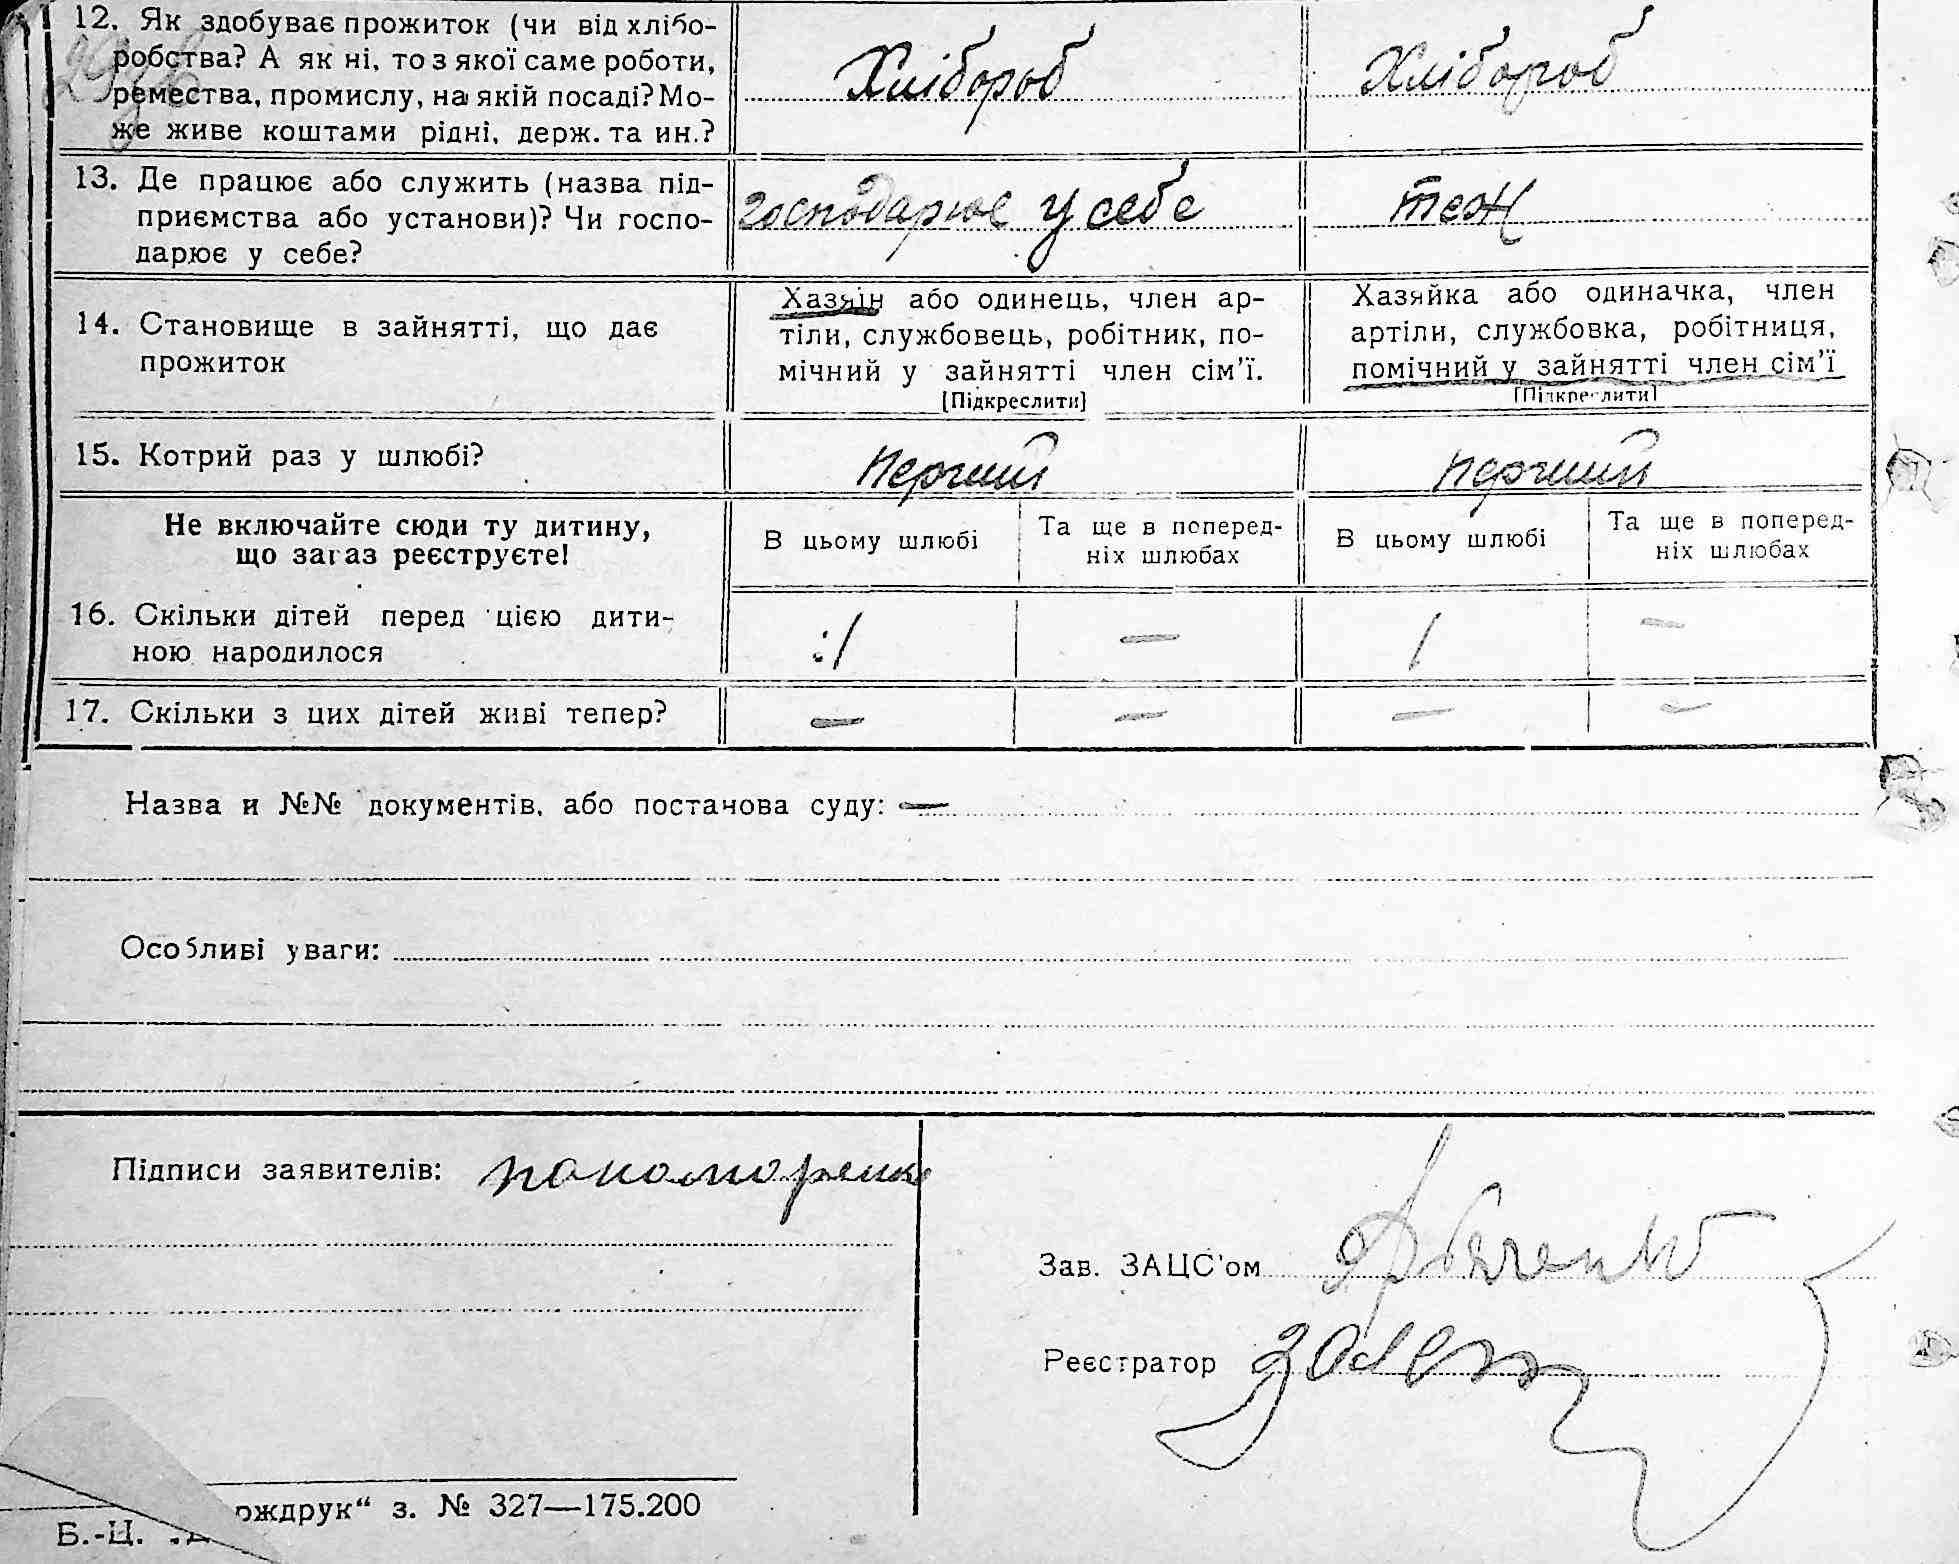 12. Як здобуває прожиток (чи від хлібо-
робства? А як ні, то з якої саме роботи,
ремества, промислу, на якій посаді? Мо-
же живе коштами рідні, держ. та ин.?
Хлібороб
Хлібороб
13. Де працює або служить (назва під-
приємства або установи)? Чи госпо-
дарює у себе?
господарює у себе
теж
14. Становище в зайнятті, що дає
прожиток
Хазяїн або одинець, член ар-
тіли, службовець, робітник, по-
мічний у зайнятті член сім'ї.
[Підкреслити]
Хазяйка або одиначка, член
артіли, службовка, робітниця,
помічний у зайнятті член сім'ї
[Підкреслити]
15. Котрий раз у шлюбі?
перший
перший
Не включайте сюди ту дитину,
що зараз реєструєте!
В цьому шлюбі
Та ще в поперед-
ніх шлюбах
В цьому шлюбі
Та ще в поперед-
ніх шлюбах
16. Скільки дітей перед цією дити-
ною народилося
:1 — 1 —
17. Скільки з цих дітей живі тепер?
— — — —
Назва и №№ документів, або постанова суду: —
Особливі уваги:
Підписи заявителів: пономаренко
Зав. ЗАЦС'ом
Реєстратор
Б.-Ц. рждрук“ з. № 327—175.200